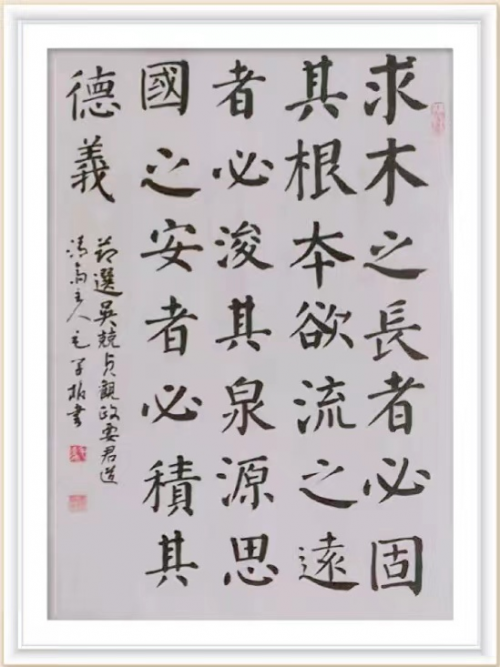 求木之長者必固
其根本欲流之遠
者必浚其泉源思
國之安者必積其
德義
節選吳兢貞觀政要君道
主人
書